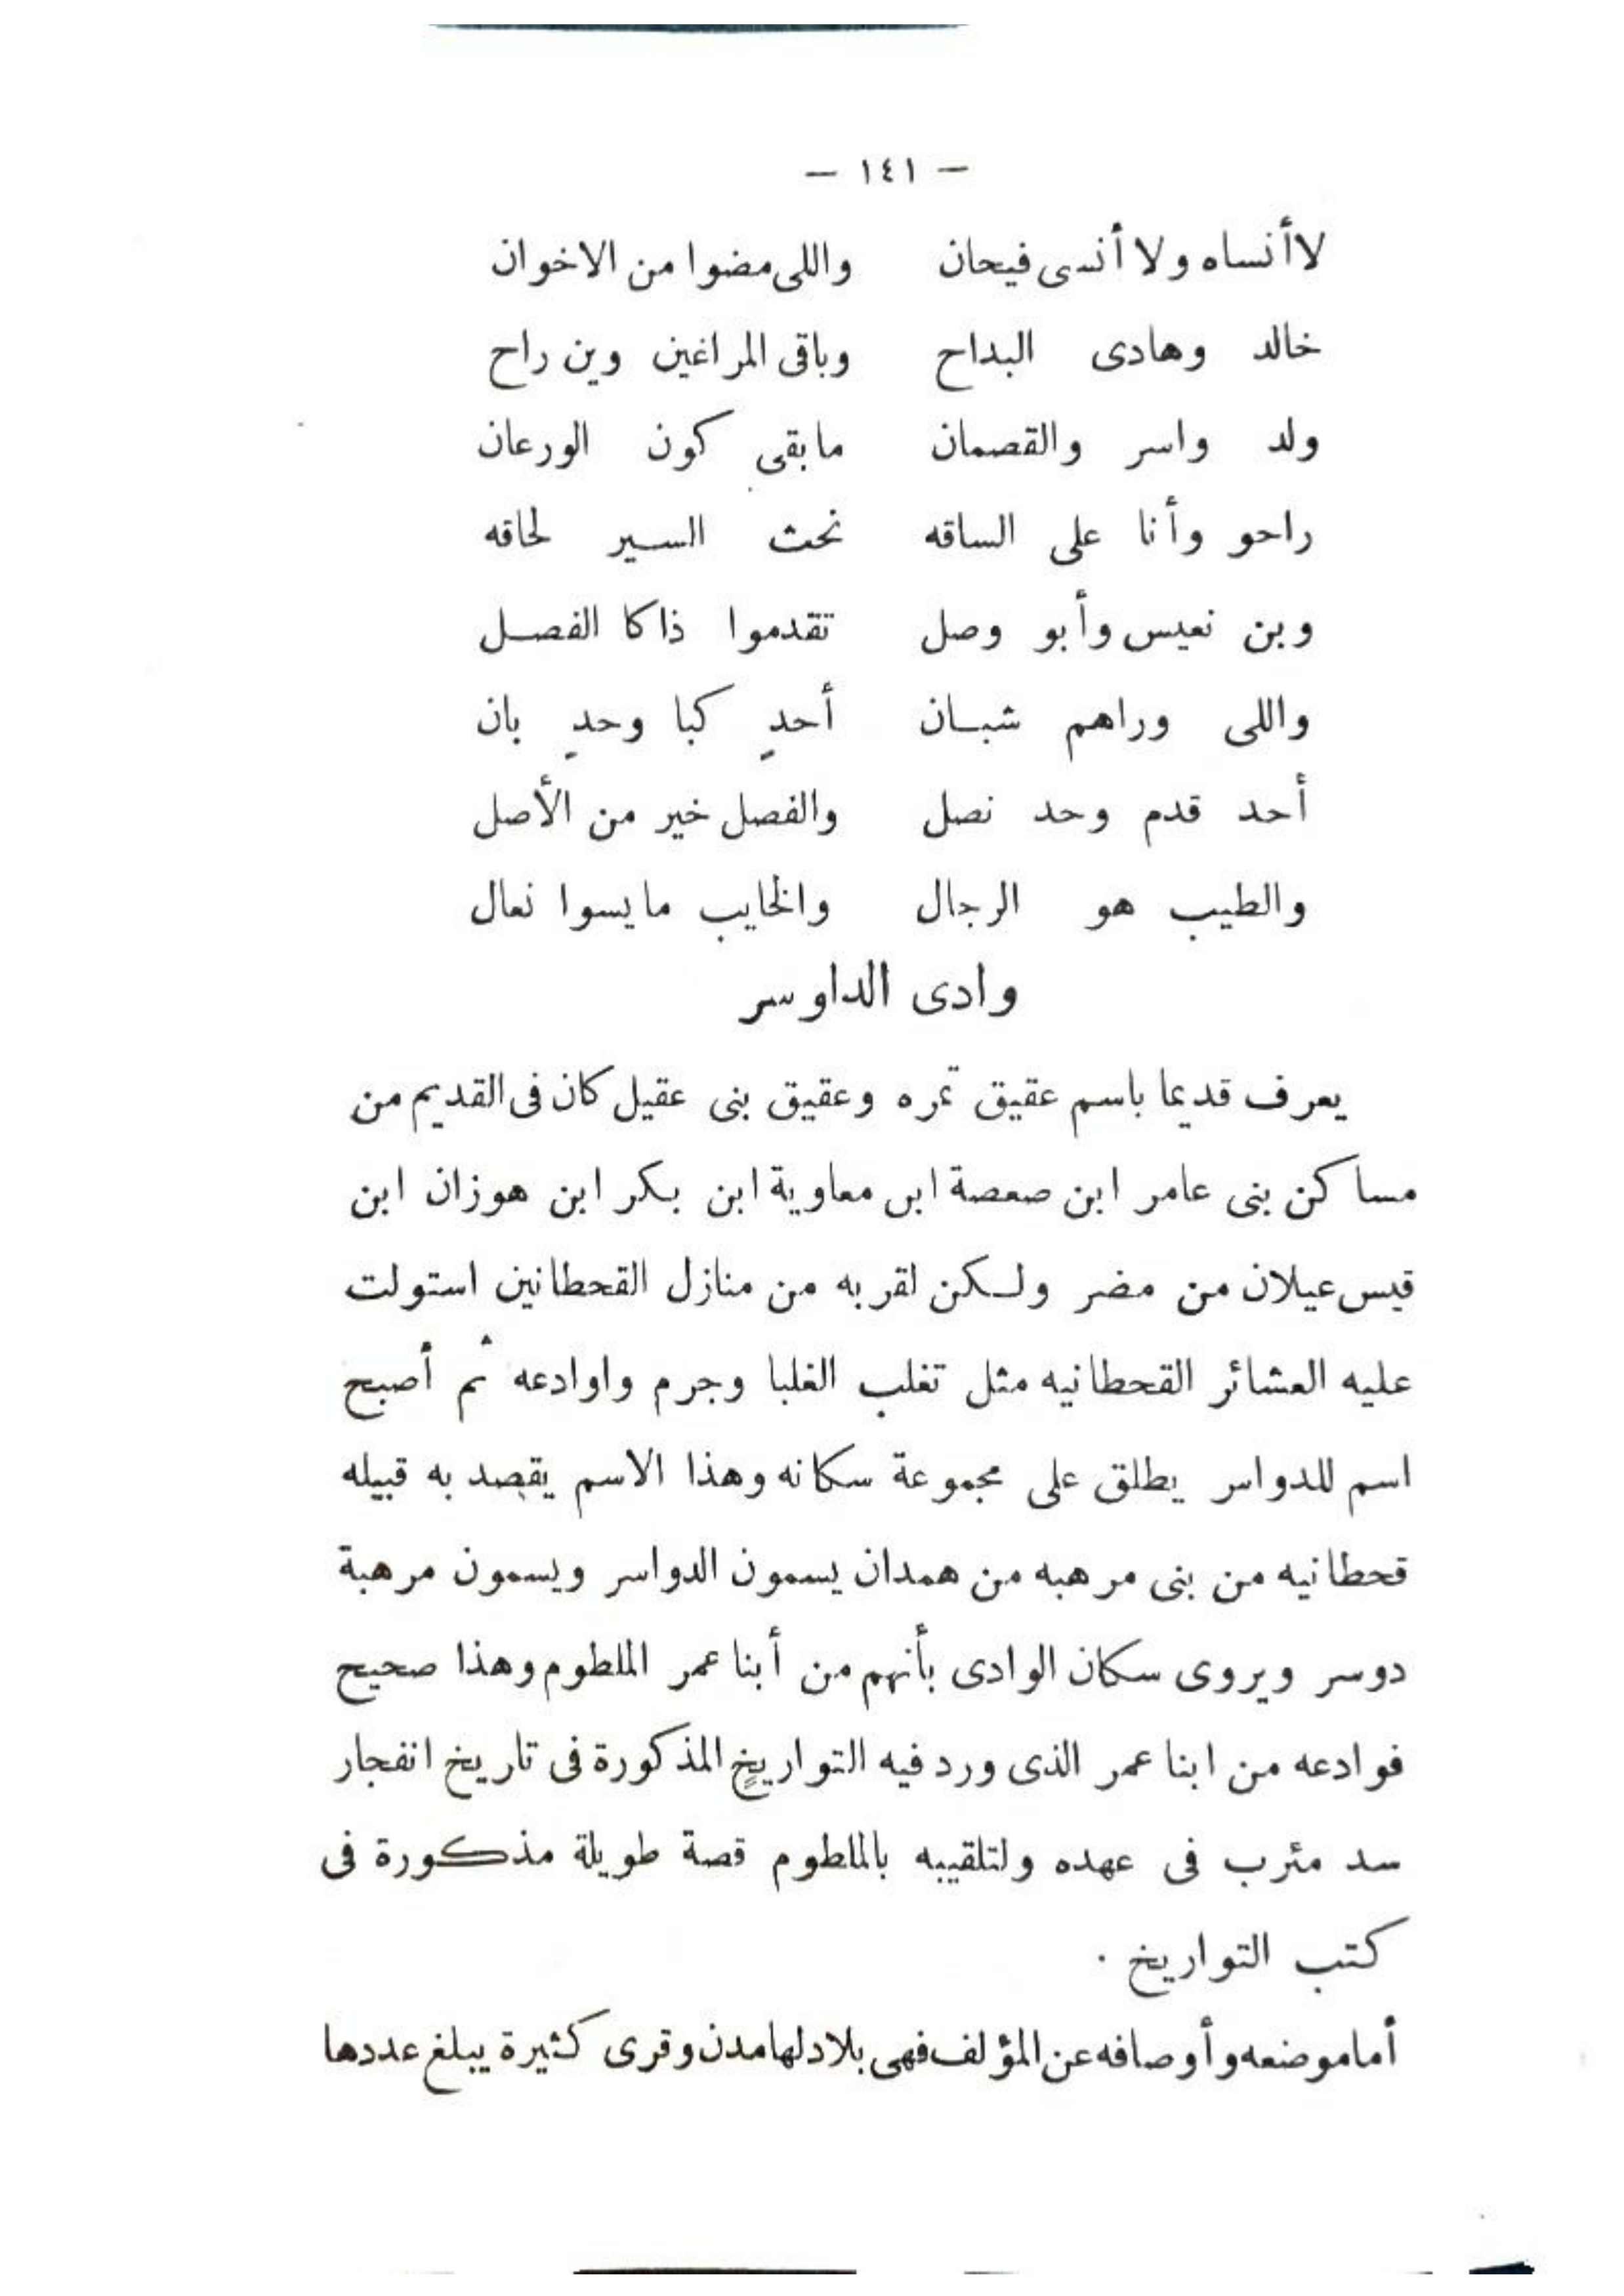 — ١٤١ —
لا أنساه ولا أنسى فيحان واللى مضوا من الاخوان
خالد وهادى البداح وباقى المراغين وين راح
ولد واسر والقصمان مابقى كون الورعان
راحو وأنا على الساقه نحث السير لحاقه
وبن نعيس وأبو وصل تقدموا ذاكا الفصل
واللى وراهم شبان أحدٍ كبا وحدٍ بان
أحد قدم وحد نصل والفصل خير من الأصل
والطيب هو الرجال والخايب مايسوا نعال
وادى الداوسر
يعرف قديما باسم عقيق تمره وعقيق بنى عقيل كان فى القديم من
مساكن بنى عامر ابن صعصة ابن معاوية ابن بكر ابن هوزان ابن
قيس عيلان من مضر ولكن لقربه من منازل القحطانين استولت
عليه العشائر القحطانيه مثل تغلب الغلبا وجرم واوادعه ثم أصبح
اسم للدواسر يطلق على مجموعة سكانه وهذا الاسم يقصد به قبيله
قحطانيه من بنى مرهبه من همدان يسمون الدواسر ويسمون مرهبة
دوسر ويروى سكان الوادى بأنهم من أبنا عمر الملطوم وهذا صحيح
فوادعه من ابنا عمر الذى ورد فيه التواريخ المذكورة فى تاريخ انفجار
سد مئرب فى عهده ولتلقيبه بالملطوم قصة طويلة مذكورة فى
كتب التواريخ .
أما موضعه وأوصافه عن المؤلف فهى بلاد لها مدن وقرى كثيرة يبلغ عددها